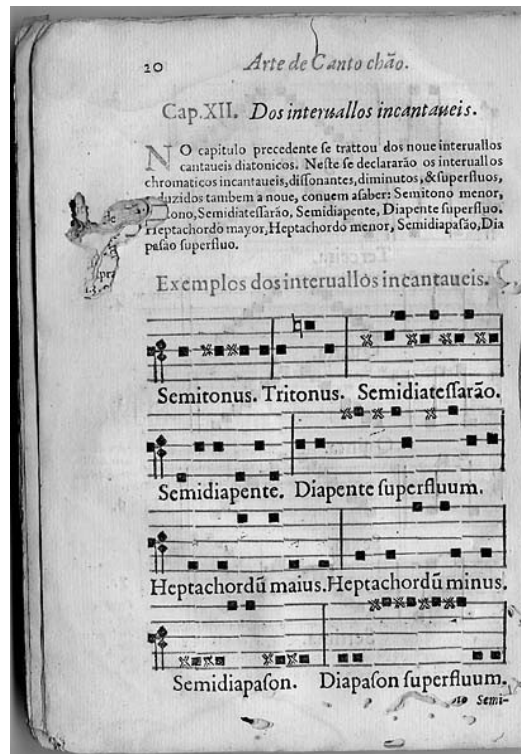 20
Arte de Canto chão.
Cap. XII. Dos interuallos incantaueis.
NO capitulo precedente ſe trattou dos noue interuallos
cantaueis diatonicos. Neſte ſe declararão os interuallos
chromaticos incantaueis, diſſonantes, diminutos, & ſuperfluos,
duzidos tambem a noue, conuem aſaber: Semitono menor,
tono, Semidiateſſarão, Semidiapente, Diapente ſuperfluo.
Heptachordo mayor, Heptachordo menor, Semidiapaſão, Dia
paſão ſuperfluo.
Exemplos dos interuallos incantaueis.
Semitonus. Tritonus. Semidiateſſarão.
Semidiapente. Diapente ſuperfluum.
Heptachordũ maius. Heptachordũ minus.
Semidiapaſon. Diapaſon ſuperfluum.
Semi-